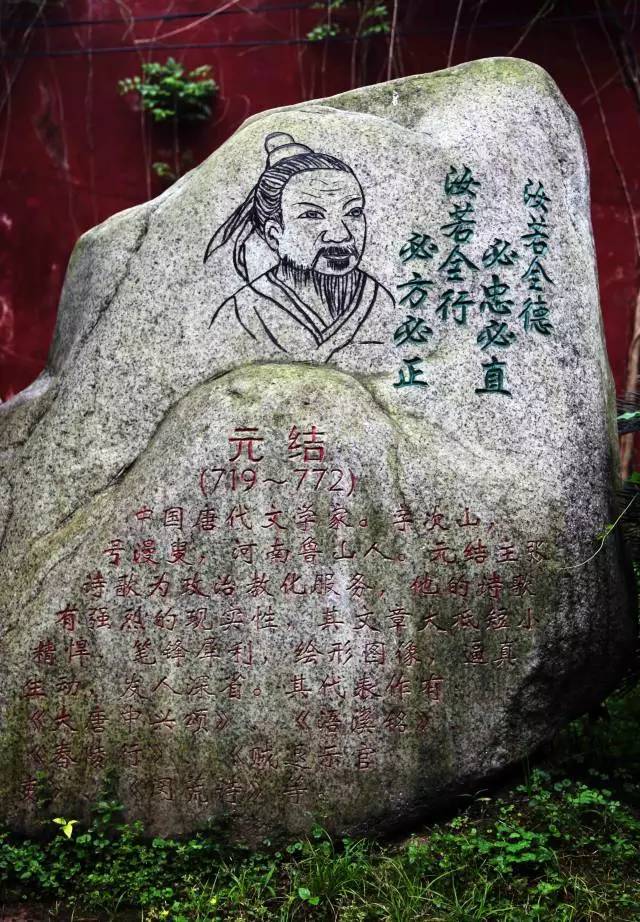 汝若全德
必忠必直
汝若全行
必方必正
元结
(719～772)
中国唐代文学家。字次山，
号漫叟，河南鲁山人。元结主张
诗歌为政治教化服务，他的诗歌
有强烈的现实性，其文章大抵短小
精悍，笔锋犀利，绘形图像，逼真
生动，发人深省。其代表作有
《大唐中兴颂》《浯溪铭》
《春陵行》《贼退示官
吏》《闵荒诗》等